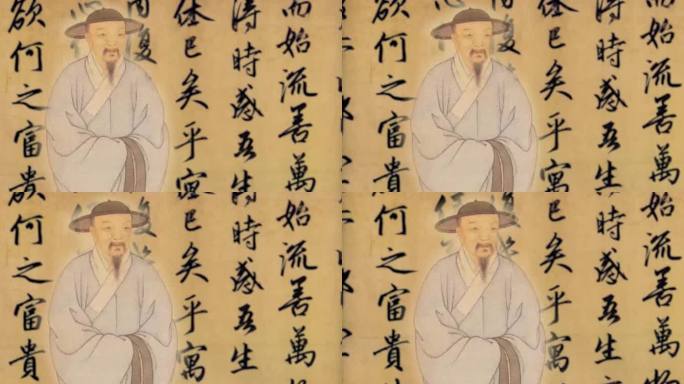 而始流善萬
得時感吾生
休已矣乎寓
復
欲何之富貴
而始流善萬
得時感吾生
休已矣乎寓
復
欲何之富貴
始流善萬
時感吾生
已矣乎寓
復
何之富貴
始流善萬
時感吾生
已矣乎寓
復
何之富貴